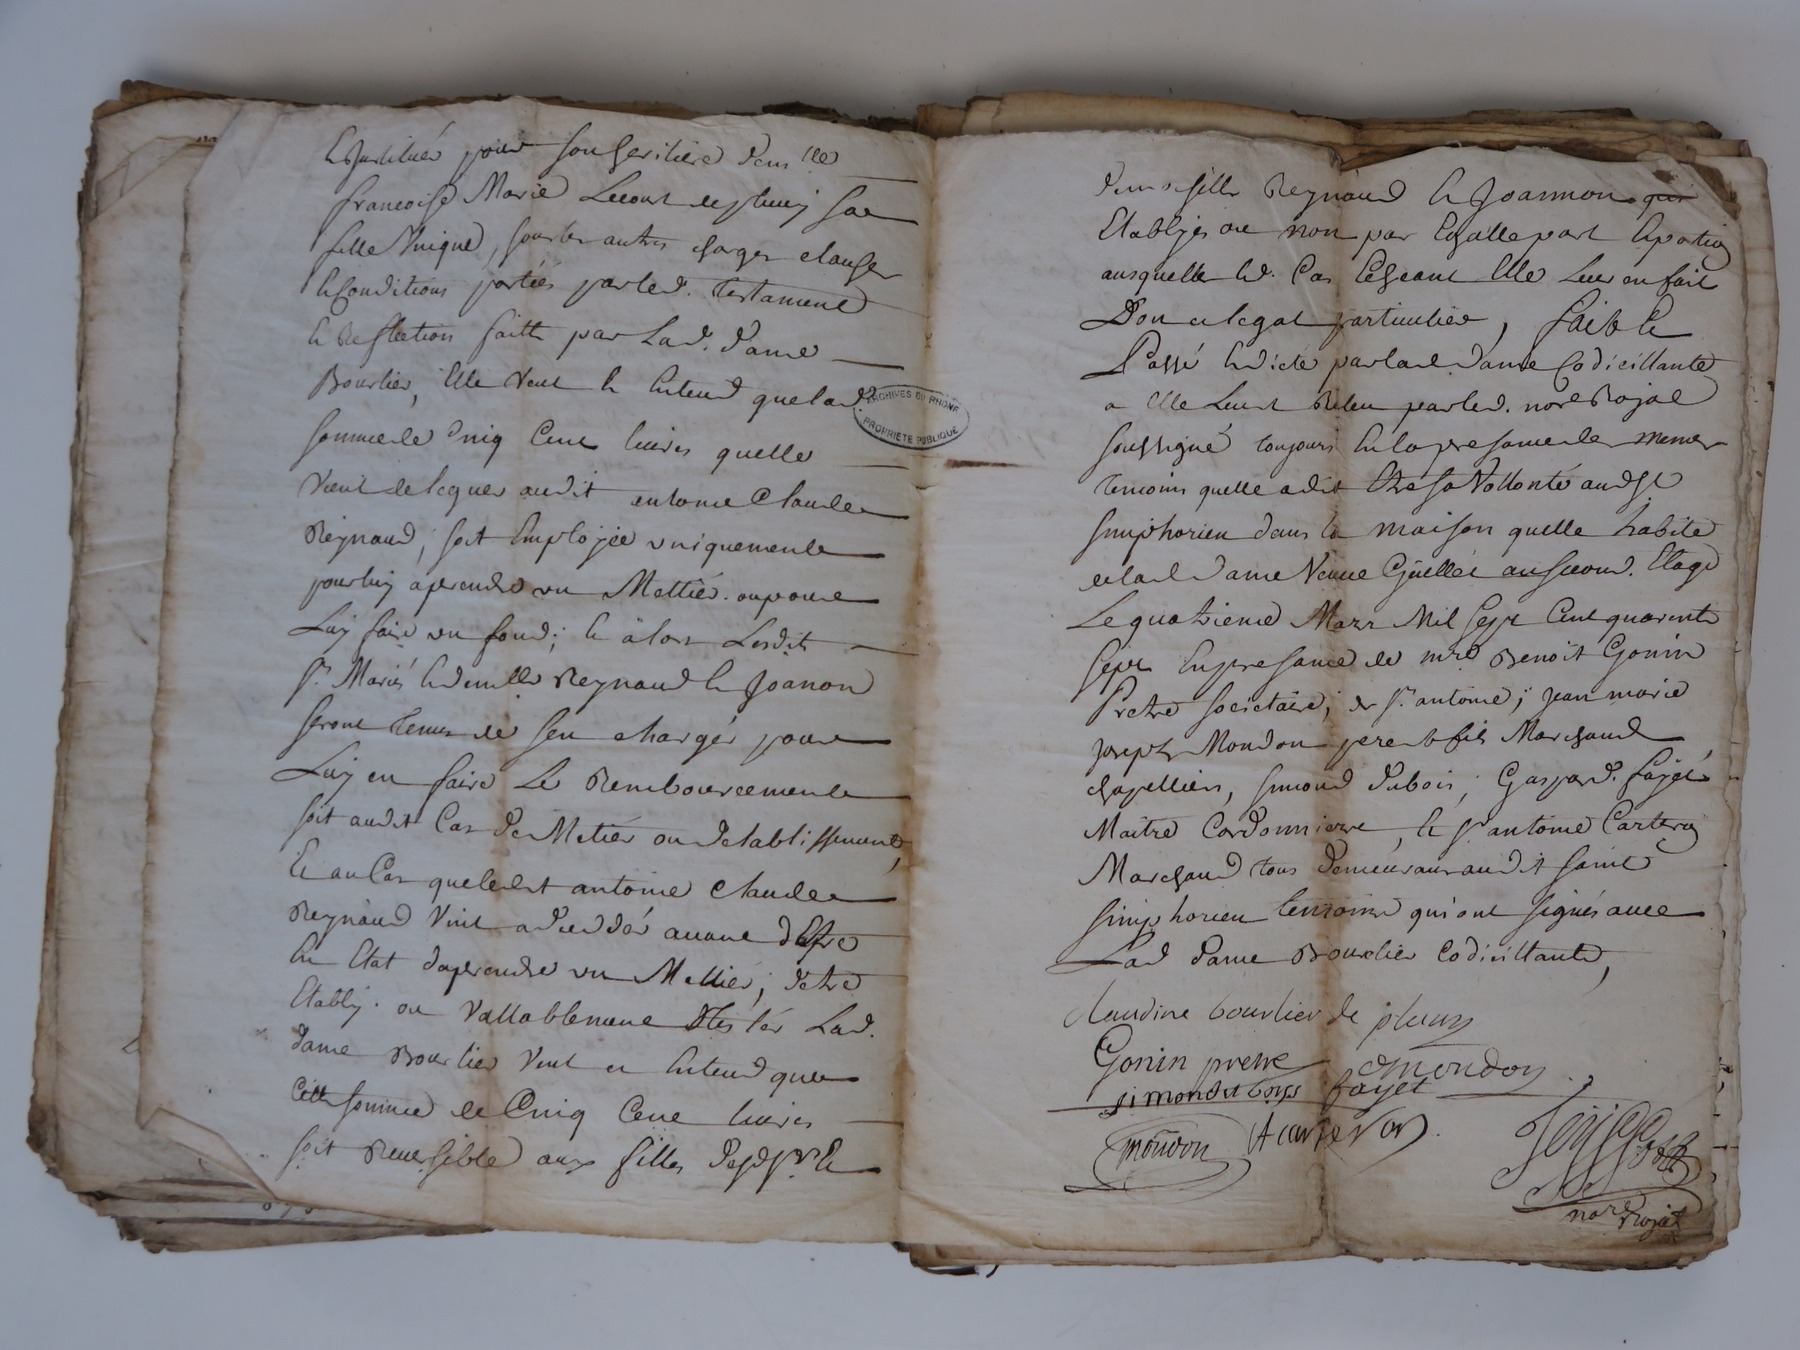 & Instituée pour son heritiere demlle
francoise Marie Lecourt de pluvy sa
fille Unique, sous les autres charges clauses
& Conditions portées par led. testament
& Reflection faitte par Lad. dame
Bourlier, Elle Veut & Entend que lad.
somme de Cinq Cent livres quelle
Vient de leguer audit antoine Claude
Reynaud, soit Employée uniquement
pour luy aprendre un Mettier ou pour
Luy faire un fond; & alors Lesdits
Sr. Mariés & demlle Reynaud & Joanon
seront tenus de sen charger pour
Luy en faire Le Remboursement
soit audit Cas de Metier ou detablissement,
Et au Cas que ledit antoine Claude
Reynaud Vint a deceder avant d'Estre
En Etat daprendre un Mettier, detre
Etably ou Vallablement tester Lad.
dame Bourlier Veut et Entend que
Cette somme de Cinq Cent livres
soit Reversible aux filles desd. &
ARCHIVES DU RHONE
PROPRIETE PUBLIQUE
demoiselle Reynaud & Joannon
Etablyes ou non par Egalle part & portion
ausquelles led. Cas Echeant Elle Leur en fait
Don et legat particulier, fait &
Passé & dicté par lad. dame Codicillante
a Elle Leu & Releu par led. nore Royal
soussigné toujours En la presance des memes
temoins quelle a dit Etre sa Vollonté aud St
simphorien dans la maison quelle habite
de lad. dame Veuve au second Etage
Le quatrieme Mars Mil Sept Cent quarente
sept En presance de mre Benoit Gonin
Pretre societaire, de Sr. antoine, jean marie
joseph Mondon pere & fils Marchand
chapelliers, simond dubois, Gaspard fayet
Maitre Cordonnier, & Sr antoine Carteron
Marchand tous demeurant audit saint
simphorien temoins qui ont signés avec
Lad dame Bourlier Codicillante,
claudine bourlier de pluvy
Gonin pretre Mondon
simond dubois fayet
mondon A carteron
nore Royal